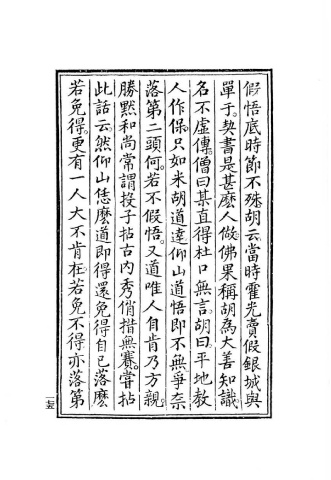 假悟底時節不殊胡云當時霍光賣假銀城與
單于契書是甚麽人做佛果稱胡為大善知識
名不虛傳僧曰某直得杜口無言胡曰平地教
人作保只如米胡道達仰山道悟即不無爭柰
落第二頭何若不假悟又道唯人自肯乃方親
勝默和尚常謂投子拈古內秀俏措無賽嘗拈
此話云然仰山恁麽道即得還免得自已落麽
若免得更有一人大不肯在若免不得亦落第
一二五